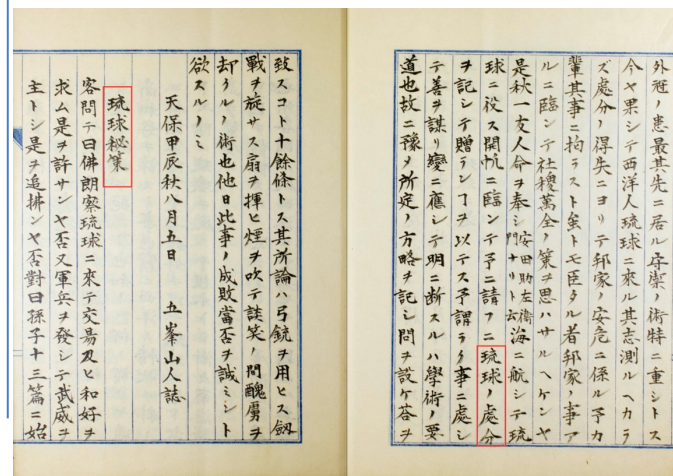 外冦ノ患最其先ニ居ル守禦ノ術特ニ重シトス
今ヤ果シテ西洋人琉球ニ來ル其志測ルヘカラ
ズ處分ノ得失ニヨリテ邦家ノ安危ニ係ル予カ
輩其事ニ拘ラスト雖トモ臣タル者邦家ノ事ア
ルニ臨ンテ社稷萬全ノ策ヲ思ハサルヘケンヤ
是秋一友人命ヲ奉シ安田助左衛門ナリト云海ニ航シテ琉
球ニ役ス開帆ニ臨ンテ予ニ請フニ琉球ノ處分
ヲ記シテ贈ランヿヲ以テス予謂ラク事ニ處シ
テ善ヲ謀リ變ニ應シテ明ニ断スルハ學術ノ要
道也故ニ豫メ所定ノ方略ヲ記シ問ヲ設ケ荅ヲ
致スコト十餘條トス其所論ハ弓銃ヲ用ヒス劔
戰ヲ旋サス扇ヲ揮ヒ煙ヲ吹テ談笑ノ間醜虜ヲ
却クルノ術也他日此事ノ成敗當否ヲ試ミント
欲スルノミ
天保甲辰秋八月五日 五峯山人誌
琉球秘策
客問テ曰佛朗察琉球ニ來テ交易及ヒ和好ヲ
求ム是ヲ許サンヤ否又軍兵ヲ發シテ武威ヲ
主トシ是ヲ追拂ンヤ否對曰孫子十三篇ニ始